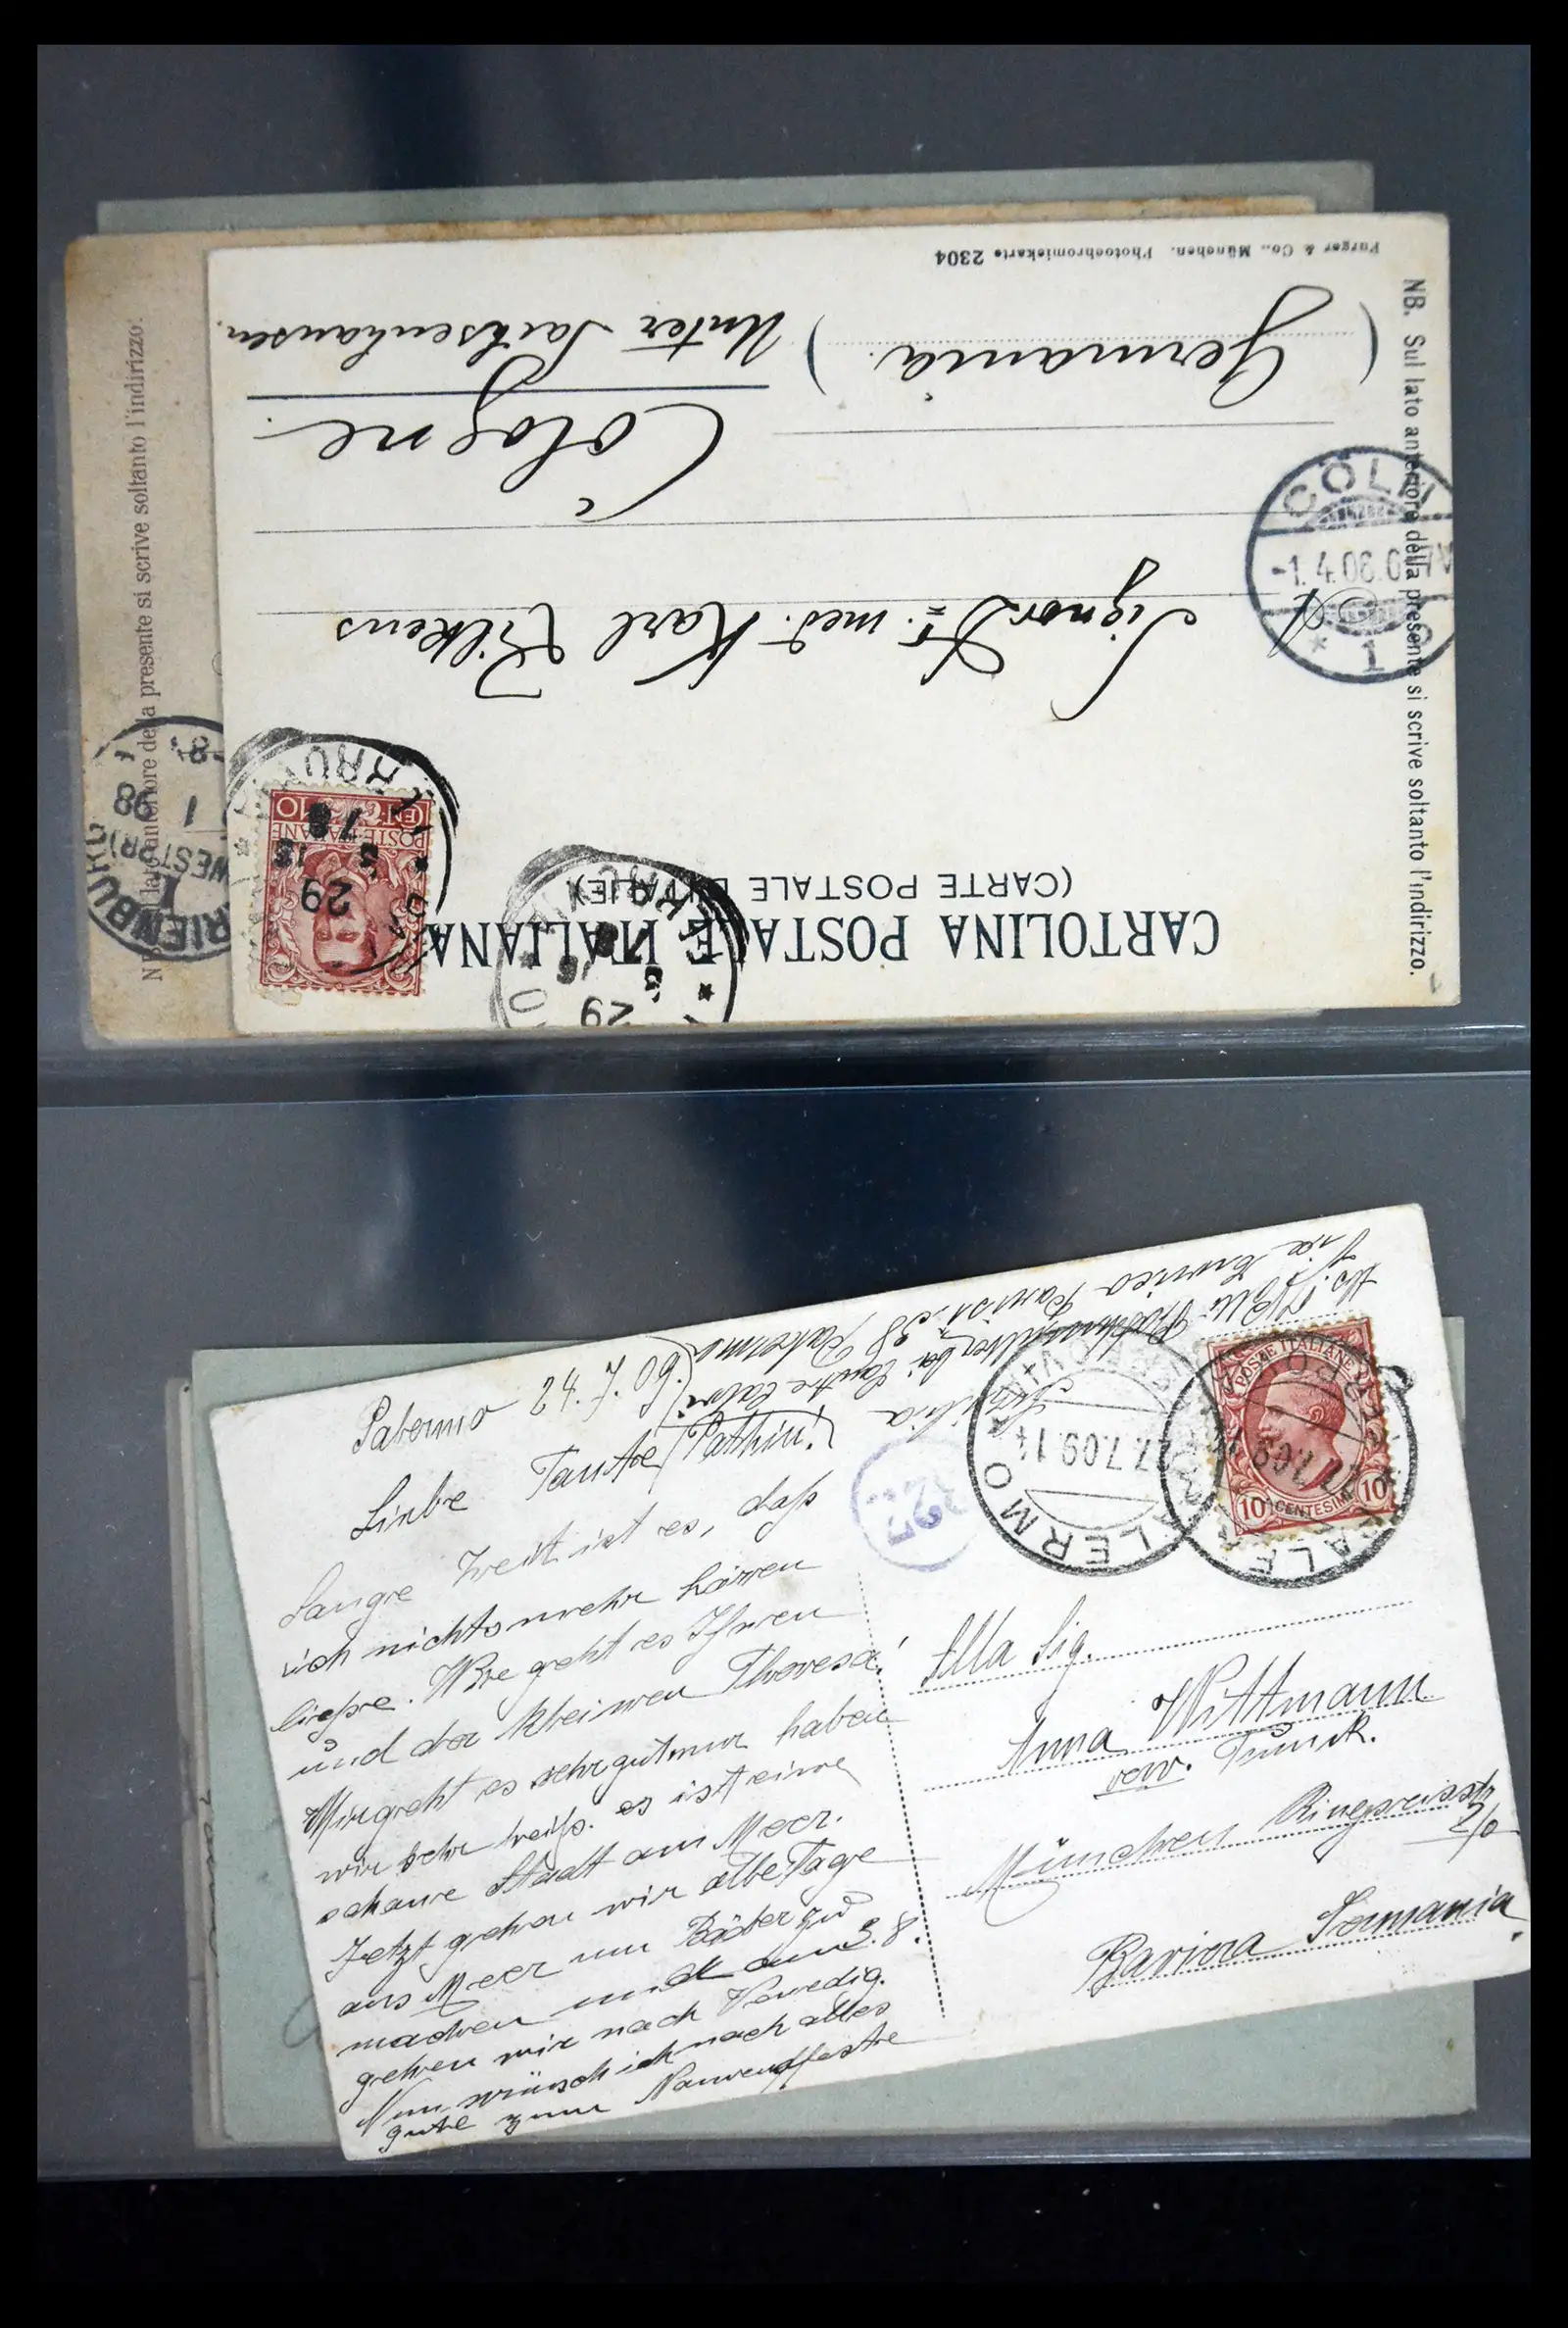 Purger & Co., München. Photochromiekarte 2304
CARTOLINA POSTALE ITALIANA
(CARTE POSTALE D'ITALIE)
Signor Dr. med. Karl
Cologne
Unter Sachsenhausen.
(Germania)
NB. Sul lato anteriore della presente si scrive soltanto l'indirizzo.
CÖLN
-1.4.08.6-7V
* 1
POSTE ITALIANE
CENT. 10
29
3
29
3
NB. Sul lato anteriore della presente si scrive soltanto l'indirizzo:
MARIENBURG
(WESTPR)
1 98
Palermo
Liebe Tante
Lange Zeit ist es, daß
ich nichts mehr hören
ließe. Wie geht es Ihnen
und der kleinen Theresa!
Mir geht es sehr gut nur haben
wir sehr heiß. es ist eine
schöne Stadt am Meer.
Jetzt gehen wir alle Tage
ans Meer um Bäder zu
machen und am 3.8.
gehen wir nach Venedig.
Nun wünsch ich noch alles
gute zum Namensfeste
Via Enrico Parisi 38 Palermo
Sicilia
PALERMO
27.7.09.14
POSTE ITALIANE
10 CENTESIMI 10
Alla Sig.
Anna Wittmann
München
Baviera Germania